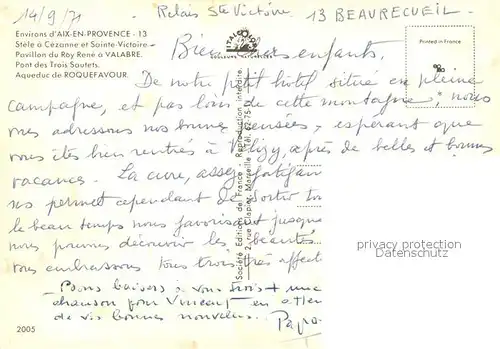 14/9/71 Relais Ste Victoire 13 BEAURECUEIL -
Environs d'AIX-EN-PROVENCE - 13
Stèle à Cézanne et Sainte-Victoire.
Pavillon du Roy René à VALABRE.
Pont des Trois Sautets.
Aqueduc de ROQUEFAVOUR.
Printed in France
Bien chers enfants,
De notre petit hôtel situé en pleine
campagne, et pas loin de cette montagne, nous
vous adressons nos bonnes pensées, espérant que
vous êtes bien rentrés à Vélizy, après de belles et bonnes
vacances. La cure, assez fatigan
ns permet cependant de sortir
le beau temps nous favorisant jusque
nous pouvons découvrir les beautés
vous embrassons tous trois très affect
Bons baisers à vous trois + une
chanson pour Vincent en
de vos bonnes nouvelles. Papo
Société Editions de France - Reproduction interdite.
Marseille
privacy protection
Datenschutz
2005